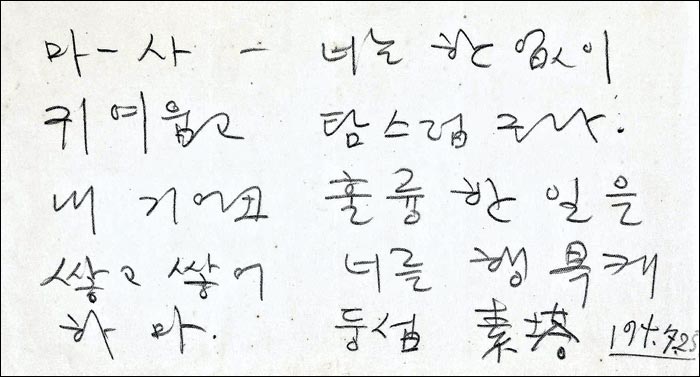 마 - 사 - 너는 한 없이
귀여웁고 탐스럽구나.
내 기어코 훌륭한 일을
쌓고 쌓어 너를 행복케
하마. 둥섭 素塔